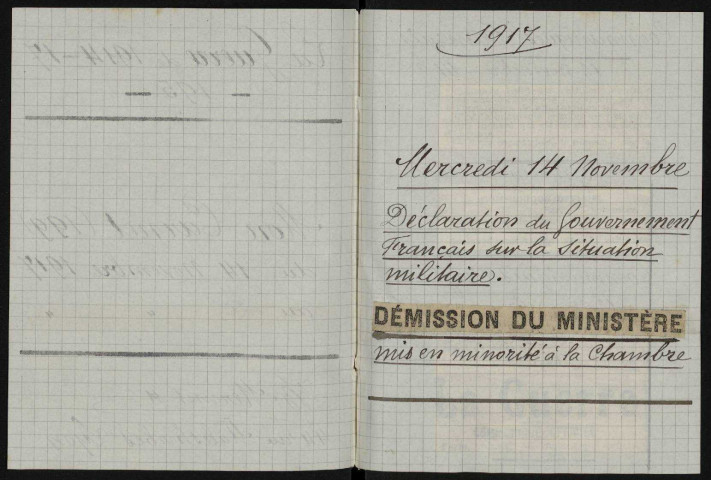 1917
Mercredi 14 Novembre
Déclaration du Gouvernement
Français sur la situation
militaire.
DÉMISSION DU MINISTÈRE
mis en minorité à la Chambre